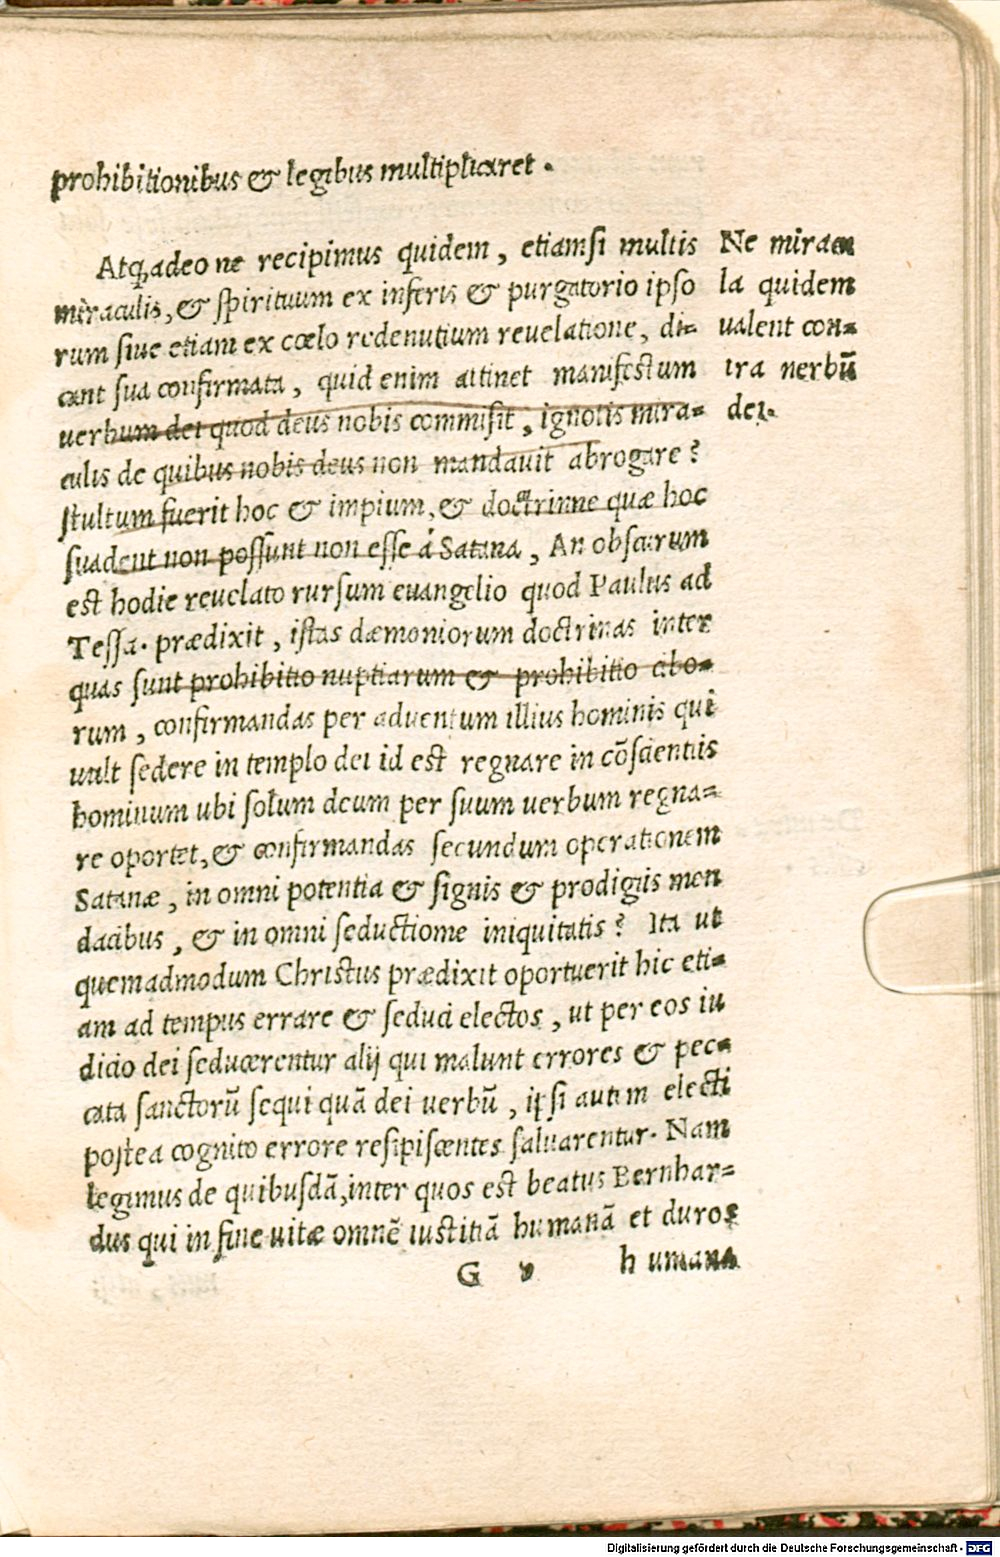 prohibitionibus & legibus multiplicaret.
Atq; adeo ne recipimus quidem, etiamsi multis
miraculis, & spirituum ex inferis & purgatorio ipso
rum siue etiam ex cœlo redeuntium reuelatione, di=
cant sua confirmata, quid enim attinet manifestum
uerbum dei quod deus nobis commisit, ignotis mira=
culis de quibus nobis deus non mandauit abrogare?
stultum fuerit hoc & impium, & doctrinne quæ hoc
suadent non possunt non esse á Satana, An obscurum
est hodie reuelato rursum euangelio quod Paulus ad
Tessa. prædixit, istas dæmoniorum doctrinas inter
quas sunt prohibitio nuptiarum & prohibitio cibo=
rum, confirmandas per aduentum illius hominis qui
uult sedere in templo dei id est regnare in cõscientiis
hominum ubi solum deum per suum uerbum regna=
re oportet, & confirmandas secundum operationem
Satanæ, in omni potentia & signis & prodigiis men
dacibus, & in omni seductiome iniquitatis? Ita ut
quemadmodum Christus prædixit oportuerit hic eti=
am ad tempus errare & seduci electos, ut per eos iu
dicio dei seducerentur alij qui malunt errores & pec=
cata sanctorũ sequi quã dei uerbũ, ipsi autem electi
postea cognito errore resipiscentes saluarentur. Nam
legimus de quibusdã, inter quos est beatus Bernhar=
dus qui in fine uitæ omnẽ iustitiã humanã et duros
G v humana
Ne miracu
la quidem
ualent con=
tra uerbũ
dei.
Digitalisierung gefördert durch die Deutsche Forschungsgemeinschaft - DFG